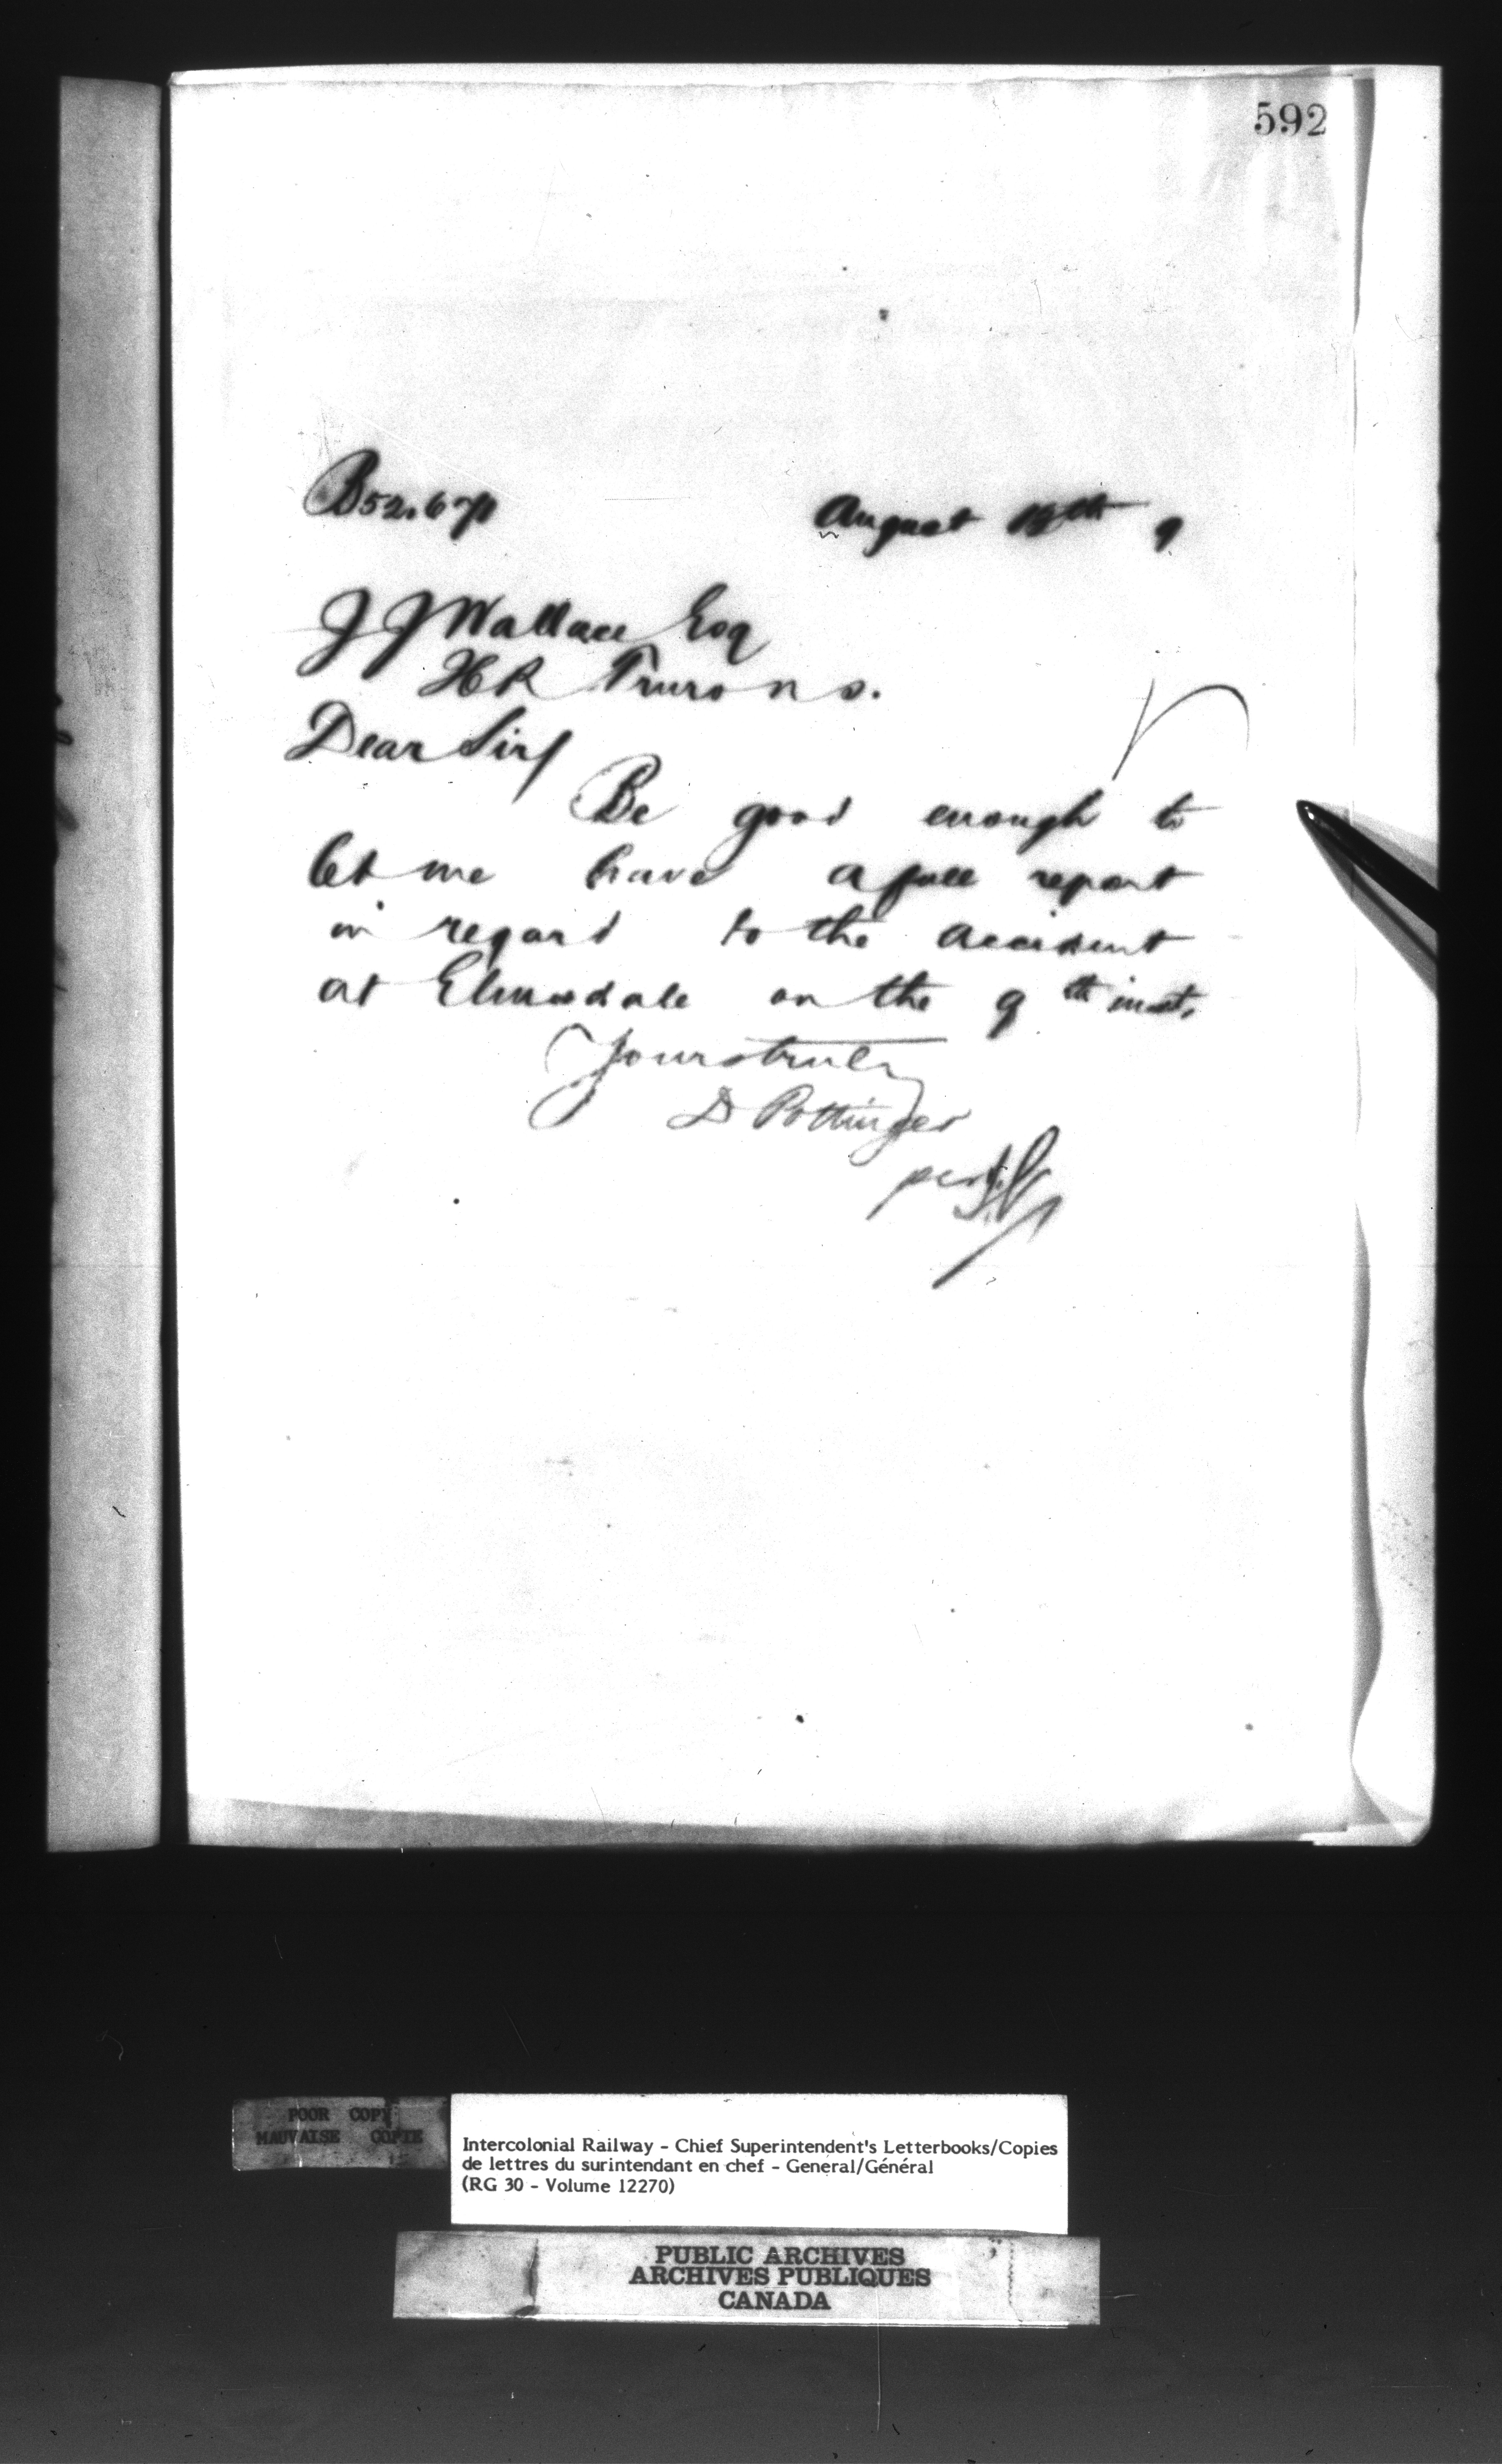 592
B52.671
August th 9
J J Wallace Esq
Truro n s.
Dear Sir/
Be good enough to
let me have a full report
in regard to the accident
at Elmsdale on the 9th inst.
Yours truly
D Pottinger
per
POOR COPY
MAUVAISE COPIE
Intercolonial Railway - Chief Superintendent's Letterbooks/Copies
de lettres du surintendant en chef - General/Général
(RG 30 - Volume 12270)
PUBLIC ARCHIVES
ARCHIVES PUBLIQUES
CANADA